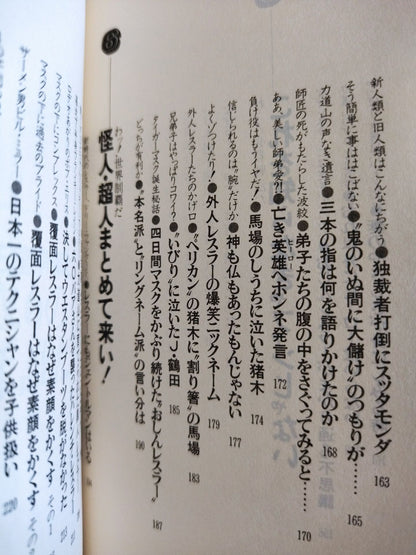 新人類と旧人類はこんなにちがう●独裁者打倒にスッタモンダ 163
そう簡単に事ははこばない●"鬼のいぬ間に大儲け"のつもりが…… 165
力道山の声なき遺言●三本の指は何を語りかけたのか 168
師匠の死がもたらした波紋●弟子たちの腹の中をさぐってみると…… 170
ああ、美しい師弟愛?!●亡き英雄へホンネ発言 172
ヒーロー
負け役はもうイヤだ!●馬場のしうちに泣いた猪木 174
信じられるのは"腕"だけか●神も仏もあったもんじゃない 177
よ〜ゾつけたり!●外人レスラーの爆笑ニックネーム 179
外人レスラーたちのかげ口●"ペリカン"の猪木に"割り箸"の馬場 183
兄弟子はやっぱりコワイ?●"いびり"に泣いたJ・鶴田 185
タイガーマスク誕生秘話●四日間マスクをかぶり続けた"おしんレスラー" 187
どっちが有利か●"本名派"と"リングネーム派"の言い分は 190
5
怪人・超人まとめて来い!
わっ!世界制覇だ
決してウエスタンブーツを脱がなかった
マスクの下にコンプレックス●覆面レスラーはなぜ素顔をかくす
マスクの下に過去のプライド●覆面レスラーはなぜ素顔をかくす その
ラーメン男ビル・ミラー●日本一のテクニシャンを子供扱い 220